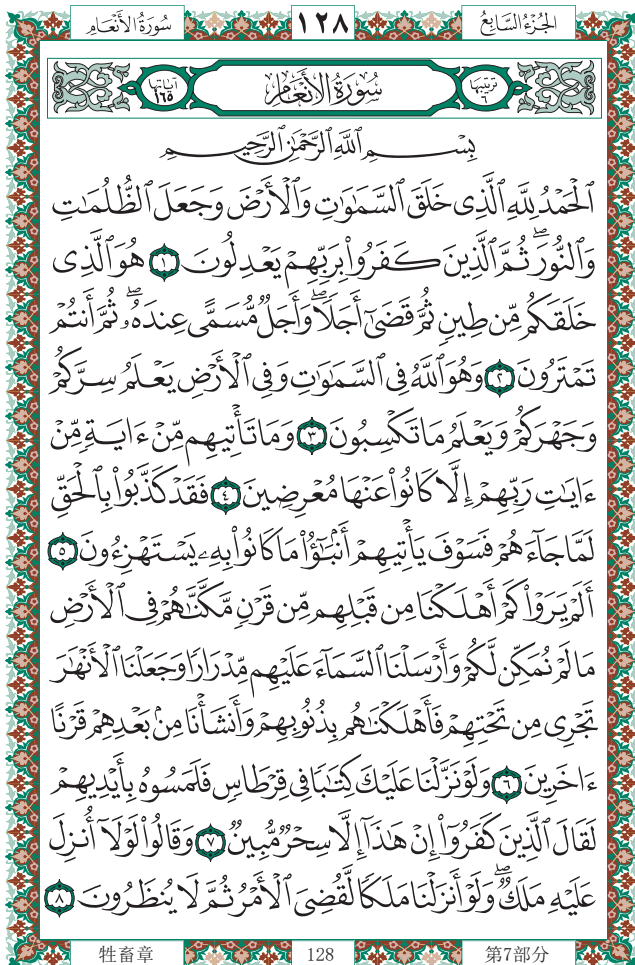 الجُزْءُ السَّابِعُ ١٢٨ سُورَةُ الأَنْعَامِ
تَرْتِيبُهَا ٦ سُورَةُ الأَنْعَامِ آيَاتُهَا ١٦٥
بِسْمِ ٱللَّهِ ٱلرَّحْمَٰنِ ٱلرَّحِيمِ
ٱلْحَمْدُ لِلَّهِ ٱلَّذِى خَلَقَ ٱلسَّمَٰوَٰتِ وَٱلْأَرْضَ وَجَعَلَ ٱلظُّلُمَٰتِ
وَٱلنُّورَ ۖ ثُمَّ ٱلَّذِينَ كَفَرُوا۟ بِرَبِّهِمْ يَعْدِلُونَ ١ هُوَ ٱلَّذِى
خَلَقَكُم مِّن طِينٍ ثُمَّ قَضَىٰٓ أَجَلًا ۖ وَأَجَلٌ مُّسَمًّى عِندَهُۥ ۖ ثُمَّ أَنتُمْ
تَمْتَرُونَ ٢ وَهُوَ ٱللَّهُ فِى ٱلسَّمَٰوَٰتِ وَفِى ٱلْأَرْضِ يَعْلَمُ سِرَّكُمْ
وَجَهْرَكُمْ وَيَعْلَمُ مَا تَكْسِبُونَ ٣ وَمَا تَأْتِيهِم مِّنْ ءَايَةٍ مِّنْ
ءَايَٰتِ رَبِّهِمْ إِلَّا كَانُوا۟ عَنْهَا مُعْرِضِينَ ٤ فَقَدْ كَذَّبُوا۟ بِٱلْحَقِّ
لَمَّا جَآءَهُمْ فَسَوْفَ يَأْتِيهِمْ أَنۢبَٰٓؤُا۟ مَا كَانُوا۟ بِهِۦ يَسْتَهْزِءُونَ ٥
أَلَمْ يَرَوْا۟ كَمْ أَهْلَكْنَا مِن قَبْلِهِم مِّن قَرْنٍ مَّكَّنَّٰهُمْ فِى ٱلْأَرْضِ
مَا لَمْ نُمَكِّن لَّكُمْ وَأَرْسَلْنَا ٱلسَّمَآءَ عَلَيْهِم مِّدْرَارًا وَجَعَلْنَا ٱلْأَنْهَٰرَ
تَجْرِى مِن تَحْتِهِمْ فَأَهْلَكْنَٰهُم بِذُنُوبِهِمْ وَأَنشَأْنَا مِنۢ بَعْدِهِمْ قَرْنًا
ءَاخَرِينَ ٦ وَلَوْ نَزَّلْنَا عَلَيْكَ كِتَٰبًا فِى قِرْطَاسٍ فَلَمَسُوهُ بِأَيْدِيهِمْ
لَقَالَ ٱلَّذِينَ كَفَرُوٓا۟ إِنْ هَٰذَآ إِلَّا سِحْرٌ مُّبِينٌ ٧ وَقَالُوا۟ لَوْلَآ أُنزِلَ
عَلَيْهِ مَلَكٌ ۖ وَلَوْ أَنزَلْنَا مَلَكًا لَّقُضِىَ ٱلْأَمْرُ ثُمَّ لَا يُنظَرُونَ ٨
牲畜章 128 第7部分